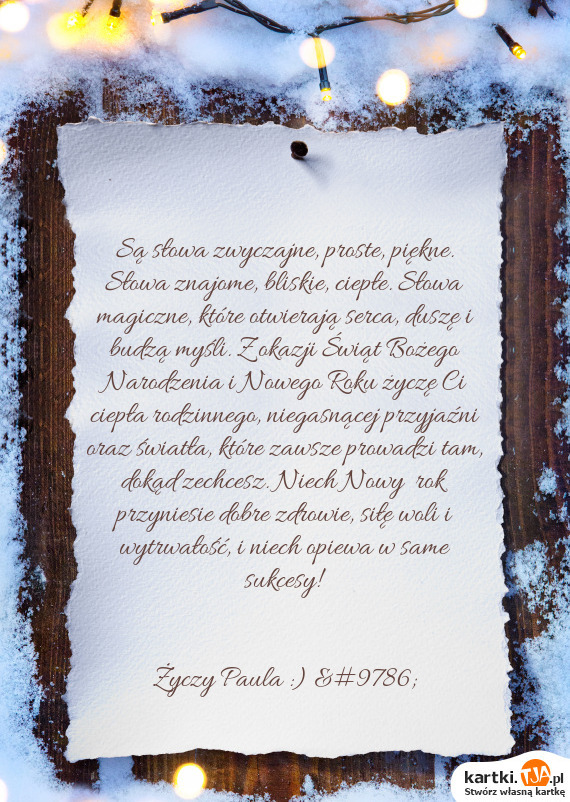 Są słowa zwyczajne, proste, piękne.
Słowa znajome, bliskie, ciepłe. Słowa
magiczne, które otwierają serca, duszę i
budzą myśli. Z okazji Świąt Bożego
Narodzenia i Nowego Roku życzę Ci
ciepła rodzinnego, niegasnącej przyjaźni
oraz światła, które zawsze prowadzi tam,
dokąd zechcesz. Niech Nowy rok
przyniesie dobre zdrowie, siłę woli i
wytrwałość, i niech opiewa w same
sukcesy!
Życzy Paula :) &#9786;
kartki.TJA.pl
Stwórz własną kartkę